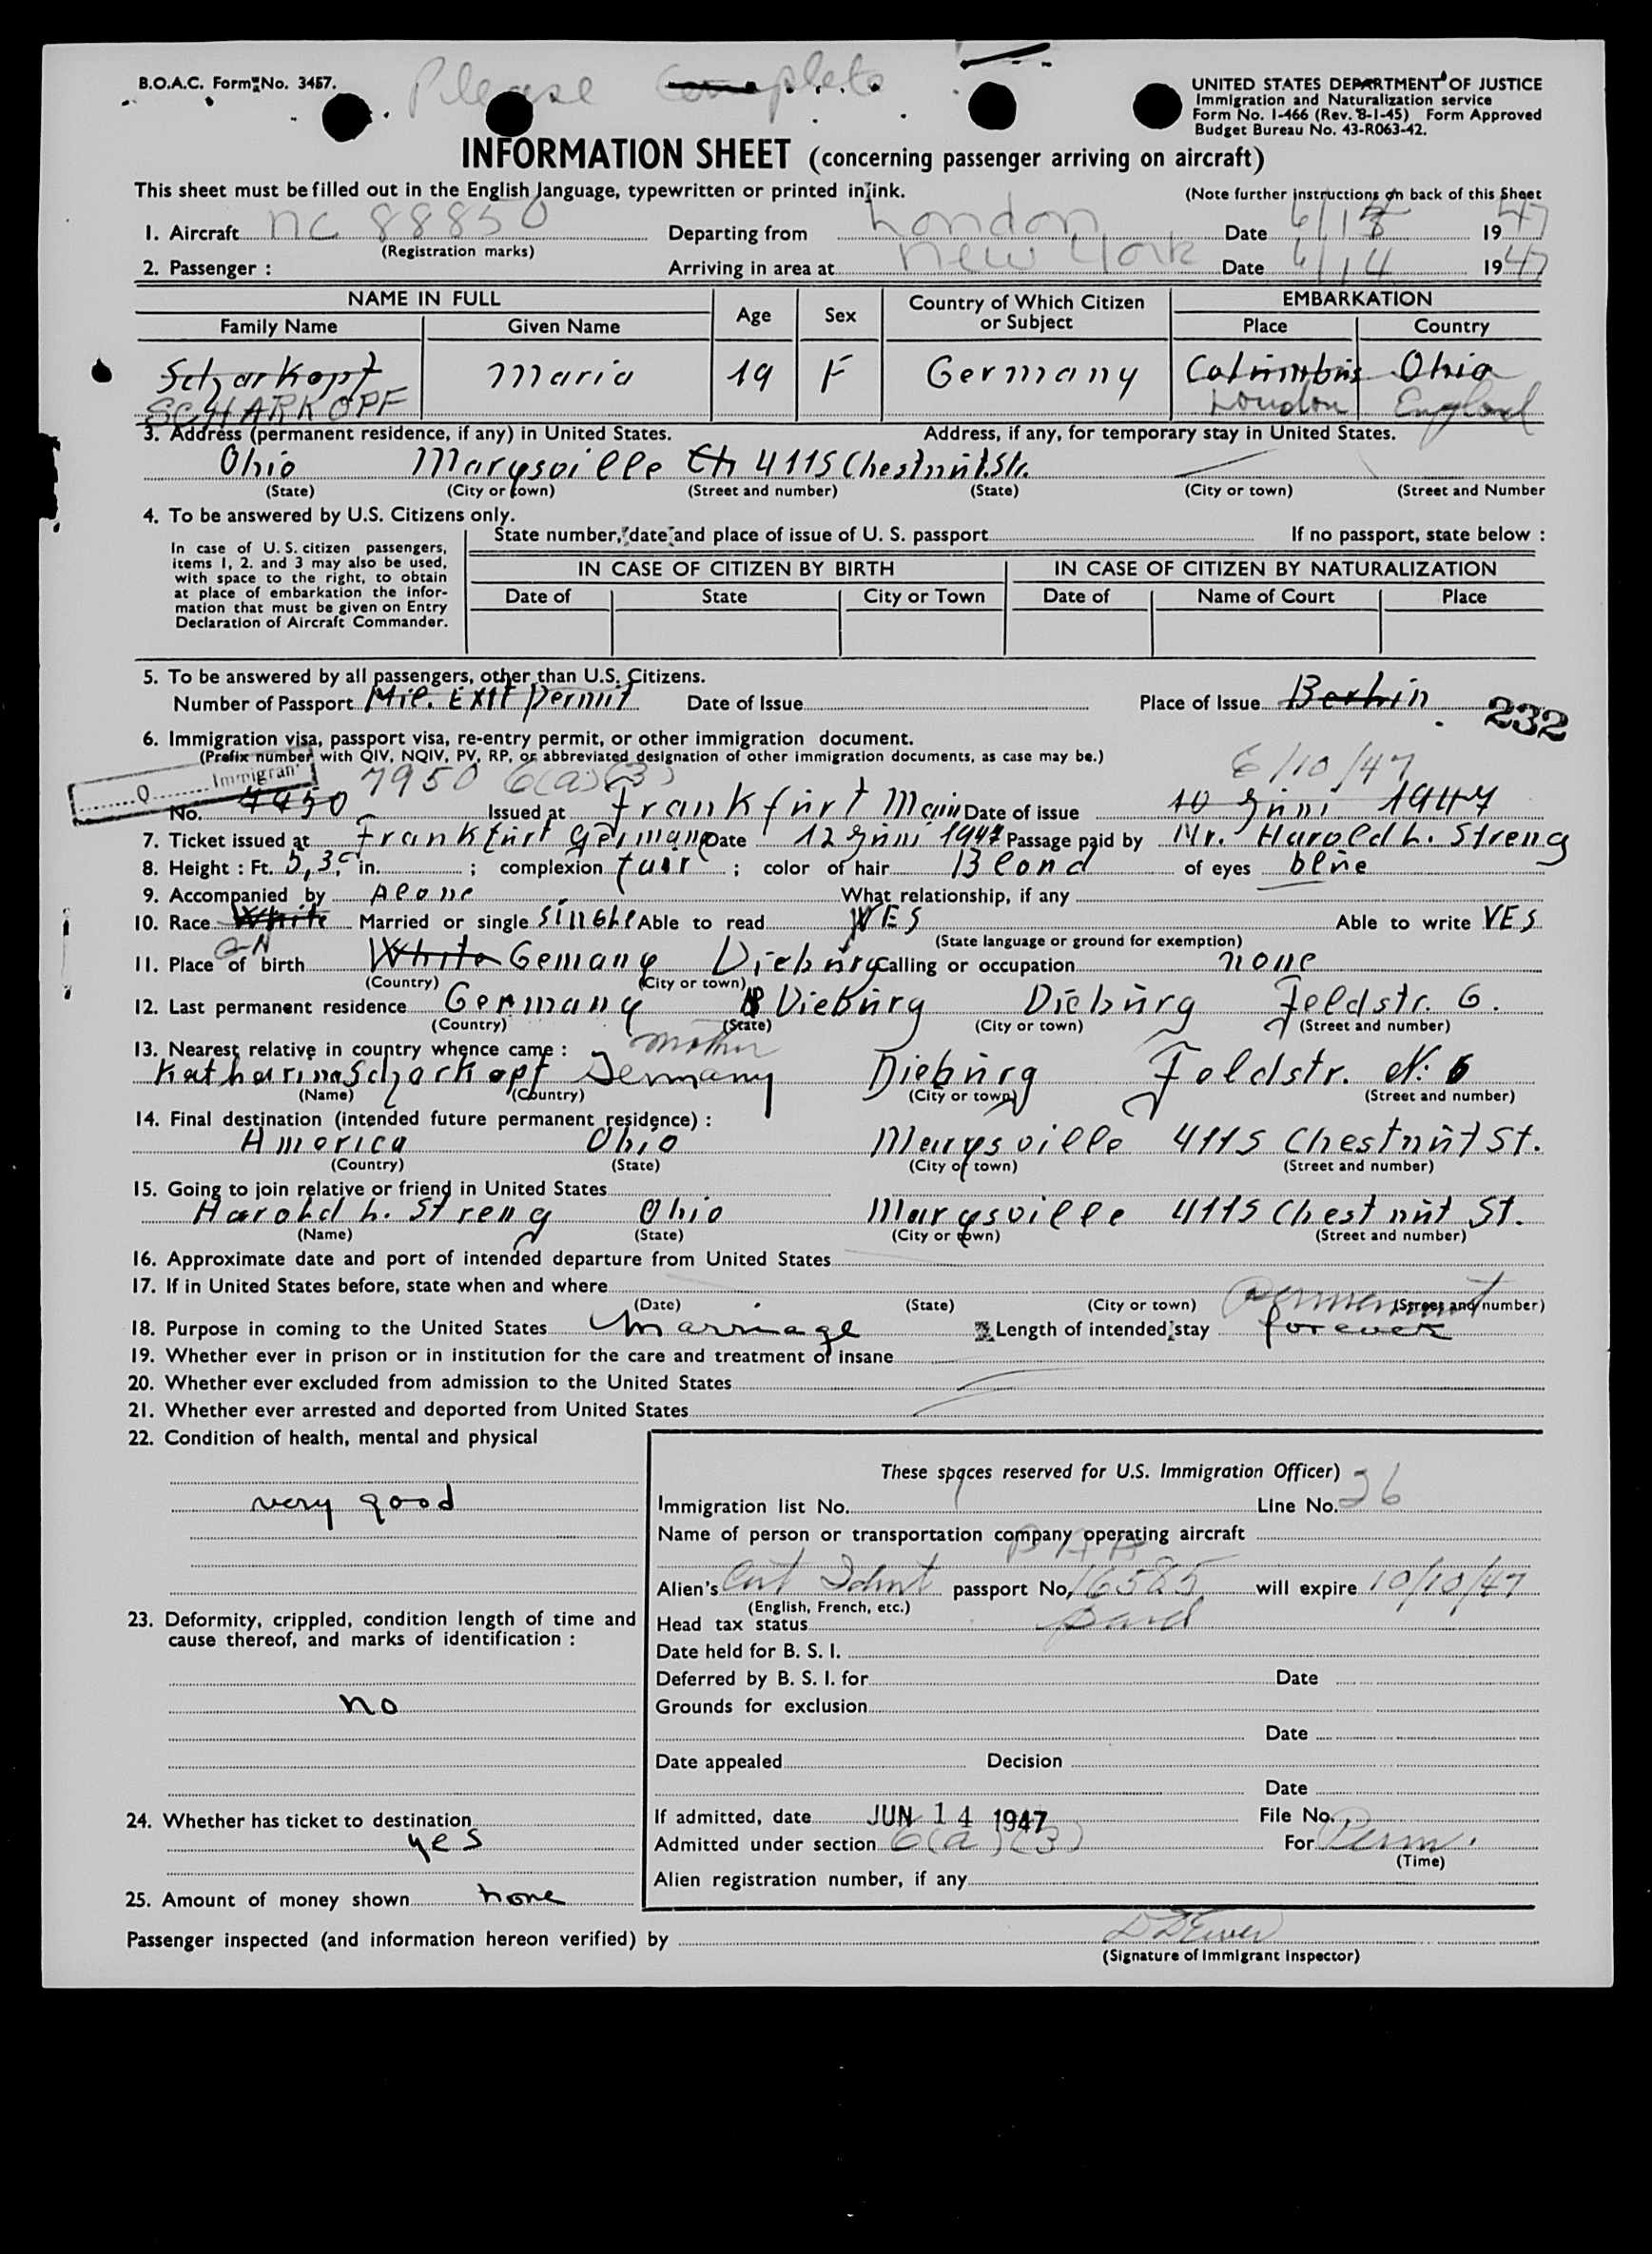 B.O.A.C. Form No. 3457.
Please Complete
UNITED STATES DEPARTMENT OF JUSTICE
Immigration and Naturalization service
Form No. I-466 (Rev. 8-1-45) Form Approved
Budget Bureau No. 43-R063-42.
INFORMATION SHEET (concerning passenger arriving on aircraft)
This sheet must be filled out in the English language, typewritten or printed in ink. (Note further instructions on back of this Sheet
1. Aircraft NC 88850 Departing from London Date 6/13 1947
(Registration marks)
2. Passenger : Arriving in area at New York Date 6/14 1947
NAME IN FULL Age Sex Country of Which Citizen or Subject EMBARKATION
Family Name Given Name Place Country
Scharkopf Maria 19 F Germany Columbus Ohio
SCHARKOPF London England
3. Address (permanent residence, if any) in United States. Address, if any, for temporary stay in United States.
Ohio Marysville Ch 4115 Chestnut.Str.
(State) (City or town) (Street and number) (State) (City or town) (Street and Number
4. To be answered by U.S. Citizens only.
In case of U. S. citizen passengers, items 1, 2. and 3 may also be used, with space to the right, to obtain at place of embarkation the information that must be given on Entry Declaration of Aircraft Commander.
State number, date and place of issue of U. S. passport If no passport, state below :
IN CASE OF CITIZEN BY BIRTH IN CASE OF CITIZEN BY NATURALIZATION
Date of State City or Town Date of Name of Court Place
5. To be answered by all passengers, other than U.S. Citizens.
Number of Passport Mil. Exit permit Date of Issue Place of Issue Berlin
232
6. Immigration visa, passport visa, re-entry permit, or other immigration document.
(Prefix number with QIV, NQIV, PV, RP, or abbreviated designation of other immigration documents, as case may be.)
Q Immigrant 7950 6(a)(3) 6/10/47
No. 7950 Issued at Frankfurt Main Date of issue 10 Juni 1947
7. Ticket issued at Frankfurt Germany Date 12 Juni 1947 Passage paid by Mr. Harold L. Streng
8. Height : Ft. 5,3 in. ; complexion fair ; color of hair Blond of eyes blue
9. Accompanied by Alone What relationship, if any
10. Race White Married or single single Able to read YES Able to write YES
(State language or ground for exemption)
11. Place of birth White Gemany Dieburg Calling or occupation none
(Country) (City or town)
12. Last permanent residence Germany Dieburg Dieburg Feldstr. 6.
(Country) (State) (City or town) (Street and number)
13. Nearest relative in country whence came : mother
Katharina Scharkopf Germany Dieburg Feldstr. N: 6
(Name) (Country) (City or town) (Street and number)
14. Final destination (intended future permanent residence) :
America Ohio Marysville 4115 Chestnut St.
(Country) (State) (City of town) (Street and number)
15. Going to join relative or friend in United States
Harold L. Streng Ohio Marysville 4115 Chestnut St.
(Name) (State) (City or town) (Street and number)
16. Approximate date and port of intended departure from United States
17. If in United States before, state when and where
(Date) (State) (City or town) (Street and number)
permanent
18. Purpose in coming to the United States Marriage Length of intended stay forever
19. Whether ever in prison or in institution for the care and treatment of insane
20. Whether ever excluded from admission to the United States
21. Whether ever arrested and deported from United States
22. Condition of health, mental and physical
very good
23. Deformity, crippled, condition length of time and cause thereof, and marks of identification :
no
24. Whether has ticket to destination
yes
25. Amount of money shown none
These spaces reserved for U.S. Immigration Officer)
Immigration list No. Line No. 26
Name of person or transportation company operating aircraft
PAA
Alien's passport No. 16585 will expire 10/10/47
(English, French, etc.)
Head tax status
Date held for B. S. I.
Deferred by B. S. I. for Date
Grounds for exclusion
Date
Date appealed Decision
Date
If admitted, date JUN 14 1947 File No.
Admitted under section 6(a)(3) For Perm.
(Time)
Alien registration number, if any
Passenger inspected (and information hereon verified) by
(Signature of Immigrant Inspector)